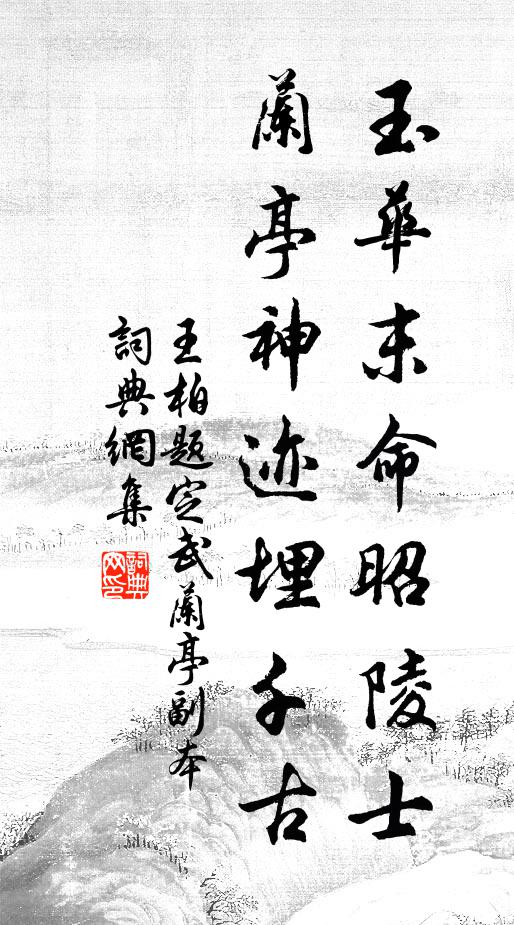 玉華末命昭陵士
蘭亭神迹埋千古
王柏题定武蘭亭副本
詞典網集
詞典網印